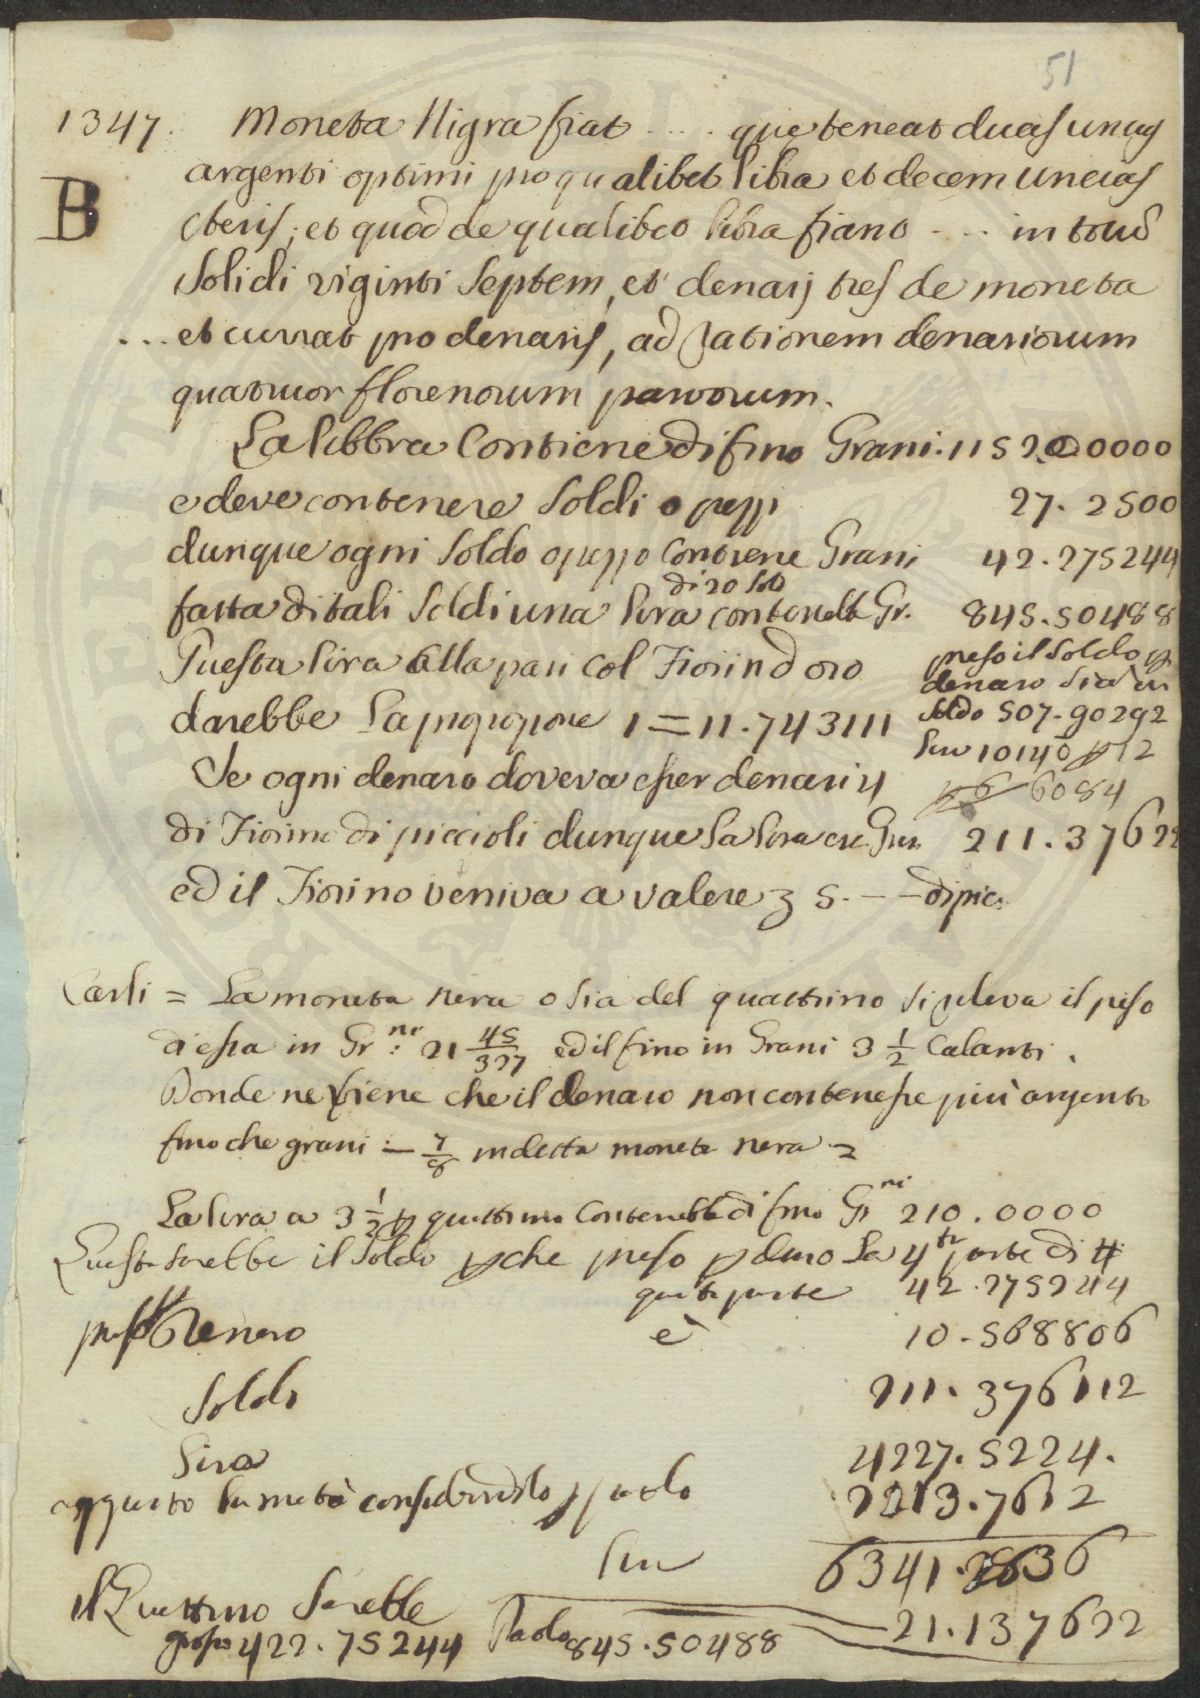 51
1347. Moneta Nigra fiat .... que teneat duas uncias
B
argenti optimi pro qualibet libra et decem uncias
eteris, et quod de qualibet libra fiant .... in totum
Solidi viginti Septem, et denarij tres de moneta
... et currat pro denariis, ad rationem denariorum
quatuor florenorum parvorum.
La libbra Contiene di fino Grani. 1152.0000
e deve contenere Soldi o pezzi 27. 2500
dunque ogni Soldo o pezzo Contiene Grani 42.275244
di 20 Soldi
fatta di tali Soldi una lira contenebbe Gr. 845.50488
Questa lira alla pari col Fiorin d'oro
preso il Soldo p
denaro Sia un
darebbe La proporzione 1=11.743111
Soldo 507.90292
10140 p 12
Se ogni denaro doveva esser denari 4
6084
di Fiorino di piccioli dunque la lira era Gra. 211.37622
ed il Fiorino veniva a valere 3 5. -- di pic.
Carli = La moneta nera o sia del quattrino si rileva il peso
di essa in Gr.ni: 21 45/327 ed il fino in Grani 3 1/2 Calanti.
Donde ne viene che il denaro non contenesse più argento
fino che grani - 7/8 in detta moneta nera =
La lira a 3 1/2 p quattrino Contenebbe di fino Gr.ni 210.0000
Questo sarebbe il Soldo pche preso p denaro La 4ta parte di #
quarta parte 42.275244
preso denaro è 10.568806
Soldo 211.376112
Lira 4227.5224.
aggiunto la metà considerandolo p paolo 2213.7612
6341.2836
il Quattrino Sarebbe 21.137622
grosso 422.75244 Paolo 845.50488